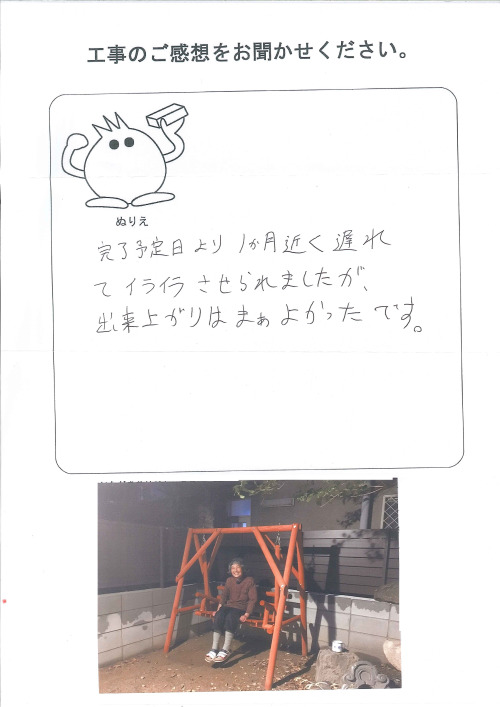 工事のご感想をお聞かせください。
ぬりえ
完了予定日より1か月近く遅れ
てイライラさせられましたが、
出来上がりはまぁよかったです。